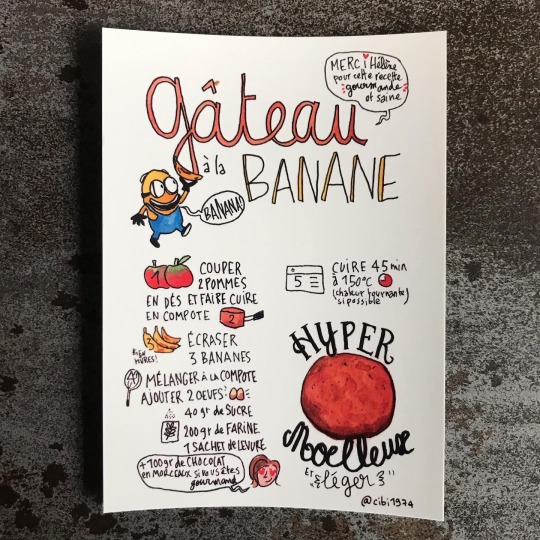 MERCi Hélène
pour cette recette
gourmande
et saine
gâteau
à la
BANANE
BANANA!
1
COUPER
2 POMMES
EN DÉS ET FAIRE CUIRE
EN COMPOTE
2
3
BIEN
MÛRES!
ÉCRASER
3 BANANES
4
MÉLANGER À LA COMPOTE
AJOUTER 2 OEUFS
40 gr de SUCRE
200 gr de FARINE
1 SACHET de LEVURE
+100gr de CHOCOLAT
en MORCEAUX si VOUS ÊTES
gourmand
5
CUIRE 45 min
à 150°C
(chaleur tournante)
si possible
HYPER
Moelleux
ET
"léger"
@cibi1974